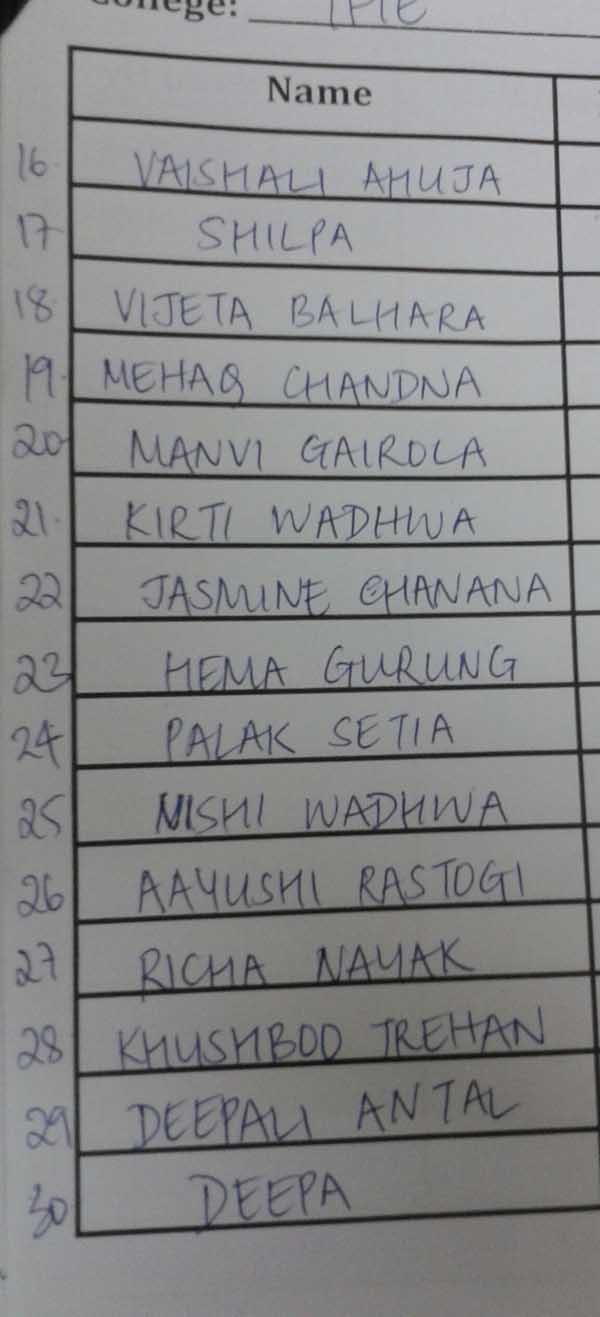 College:
Name
16. VAISHALI AHUJA
17 SHILPA
18. VIJETA BALHARA
19. MEHAQ CHANDNA
20 MANVI GAIROLA
21. KIRTI WADHWA
22 JASMINE CHANANA
23 HEMA GURUNG
24 PALAK SETIA
25 NISHI WADHWA
26 AAYUSHI RASTOGI
27 RICHA NAYAK
28 KHUSHBOO TREHAN
29 DEEPALI ANTAL
30 DEEPA